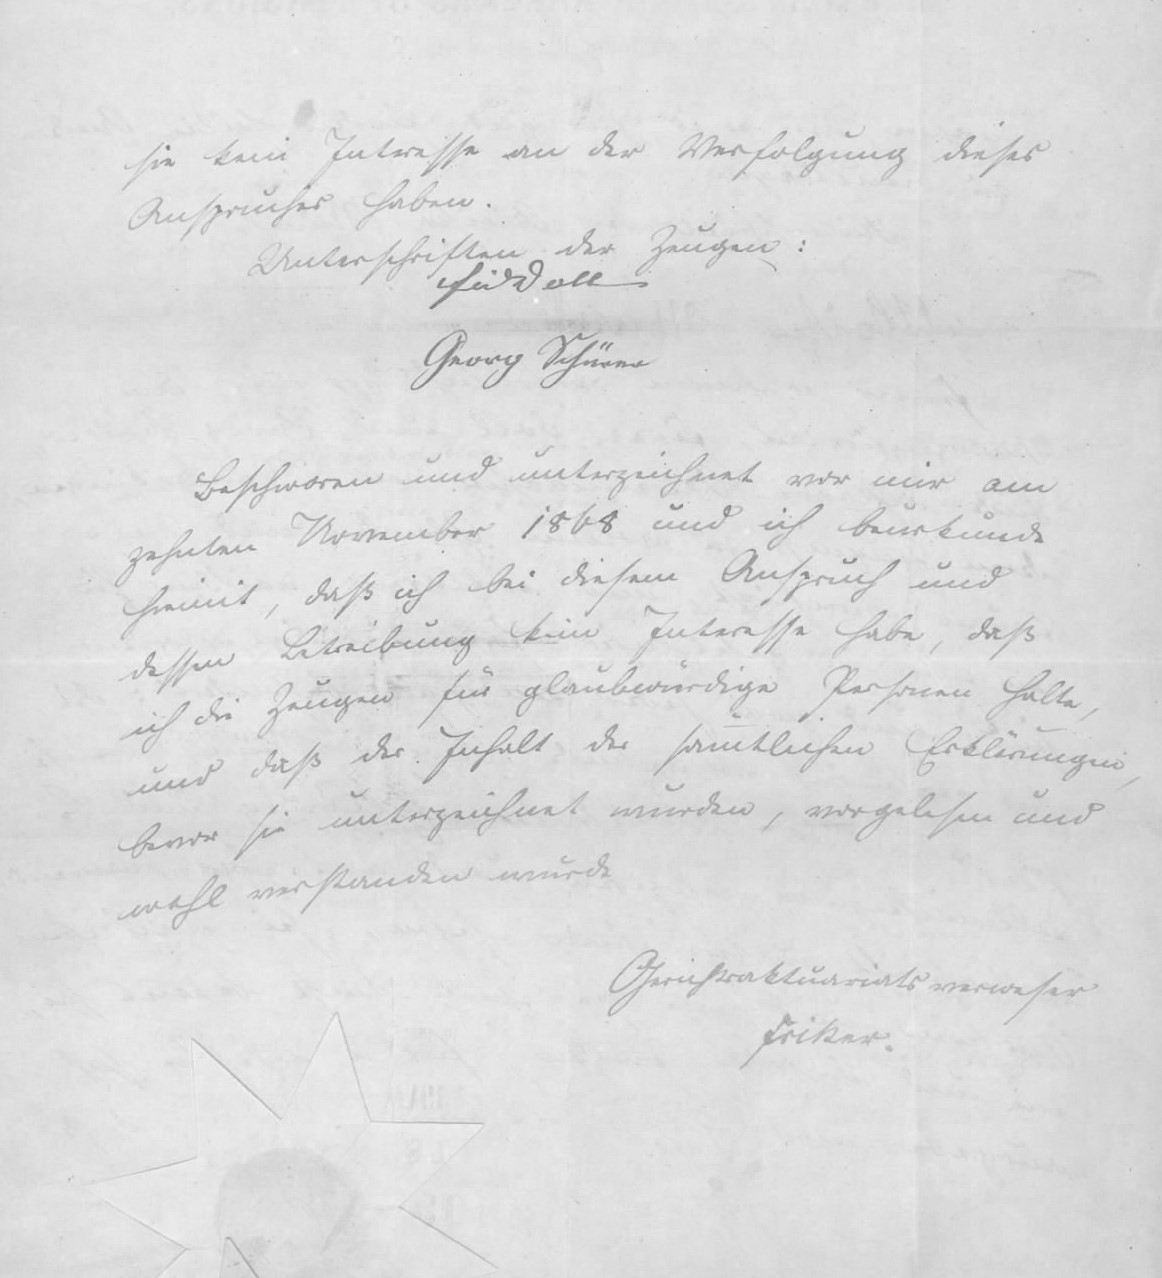 sie kein Interesse an der Verfolgung dieses
Anspruches haben.
Unterschriften der Zeugen:
Georg Schürer
Beschworen und unterzeichnet vor mir am
zehnten November 1868 und ich beurkunde
hiemit, daß ich bei diesem Anspruch und
dessen Betreibung kein Interesse habe, daß
ich die Zeugen für glaubwürdige Personen halte,
und daß der Inhalt der sämtlichen Erklärungen,
bevor sie unterzeichnet wurden, vorgelesen und
wohl verstanden wurde
Gerichtsaktuariatsverweser
Friker.